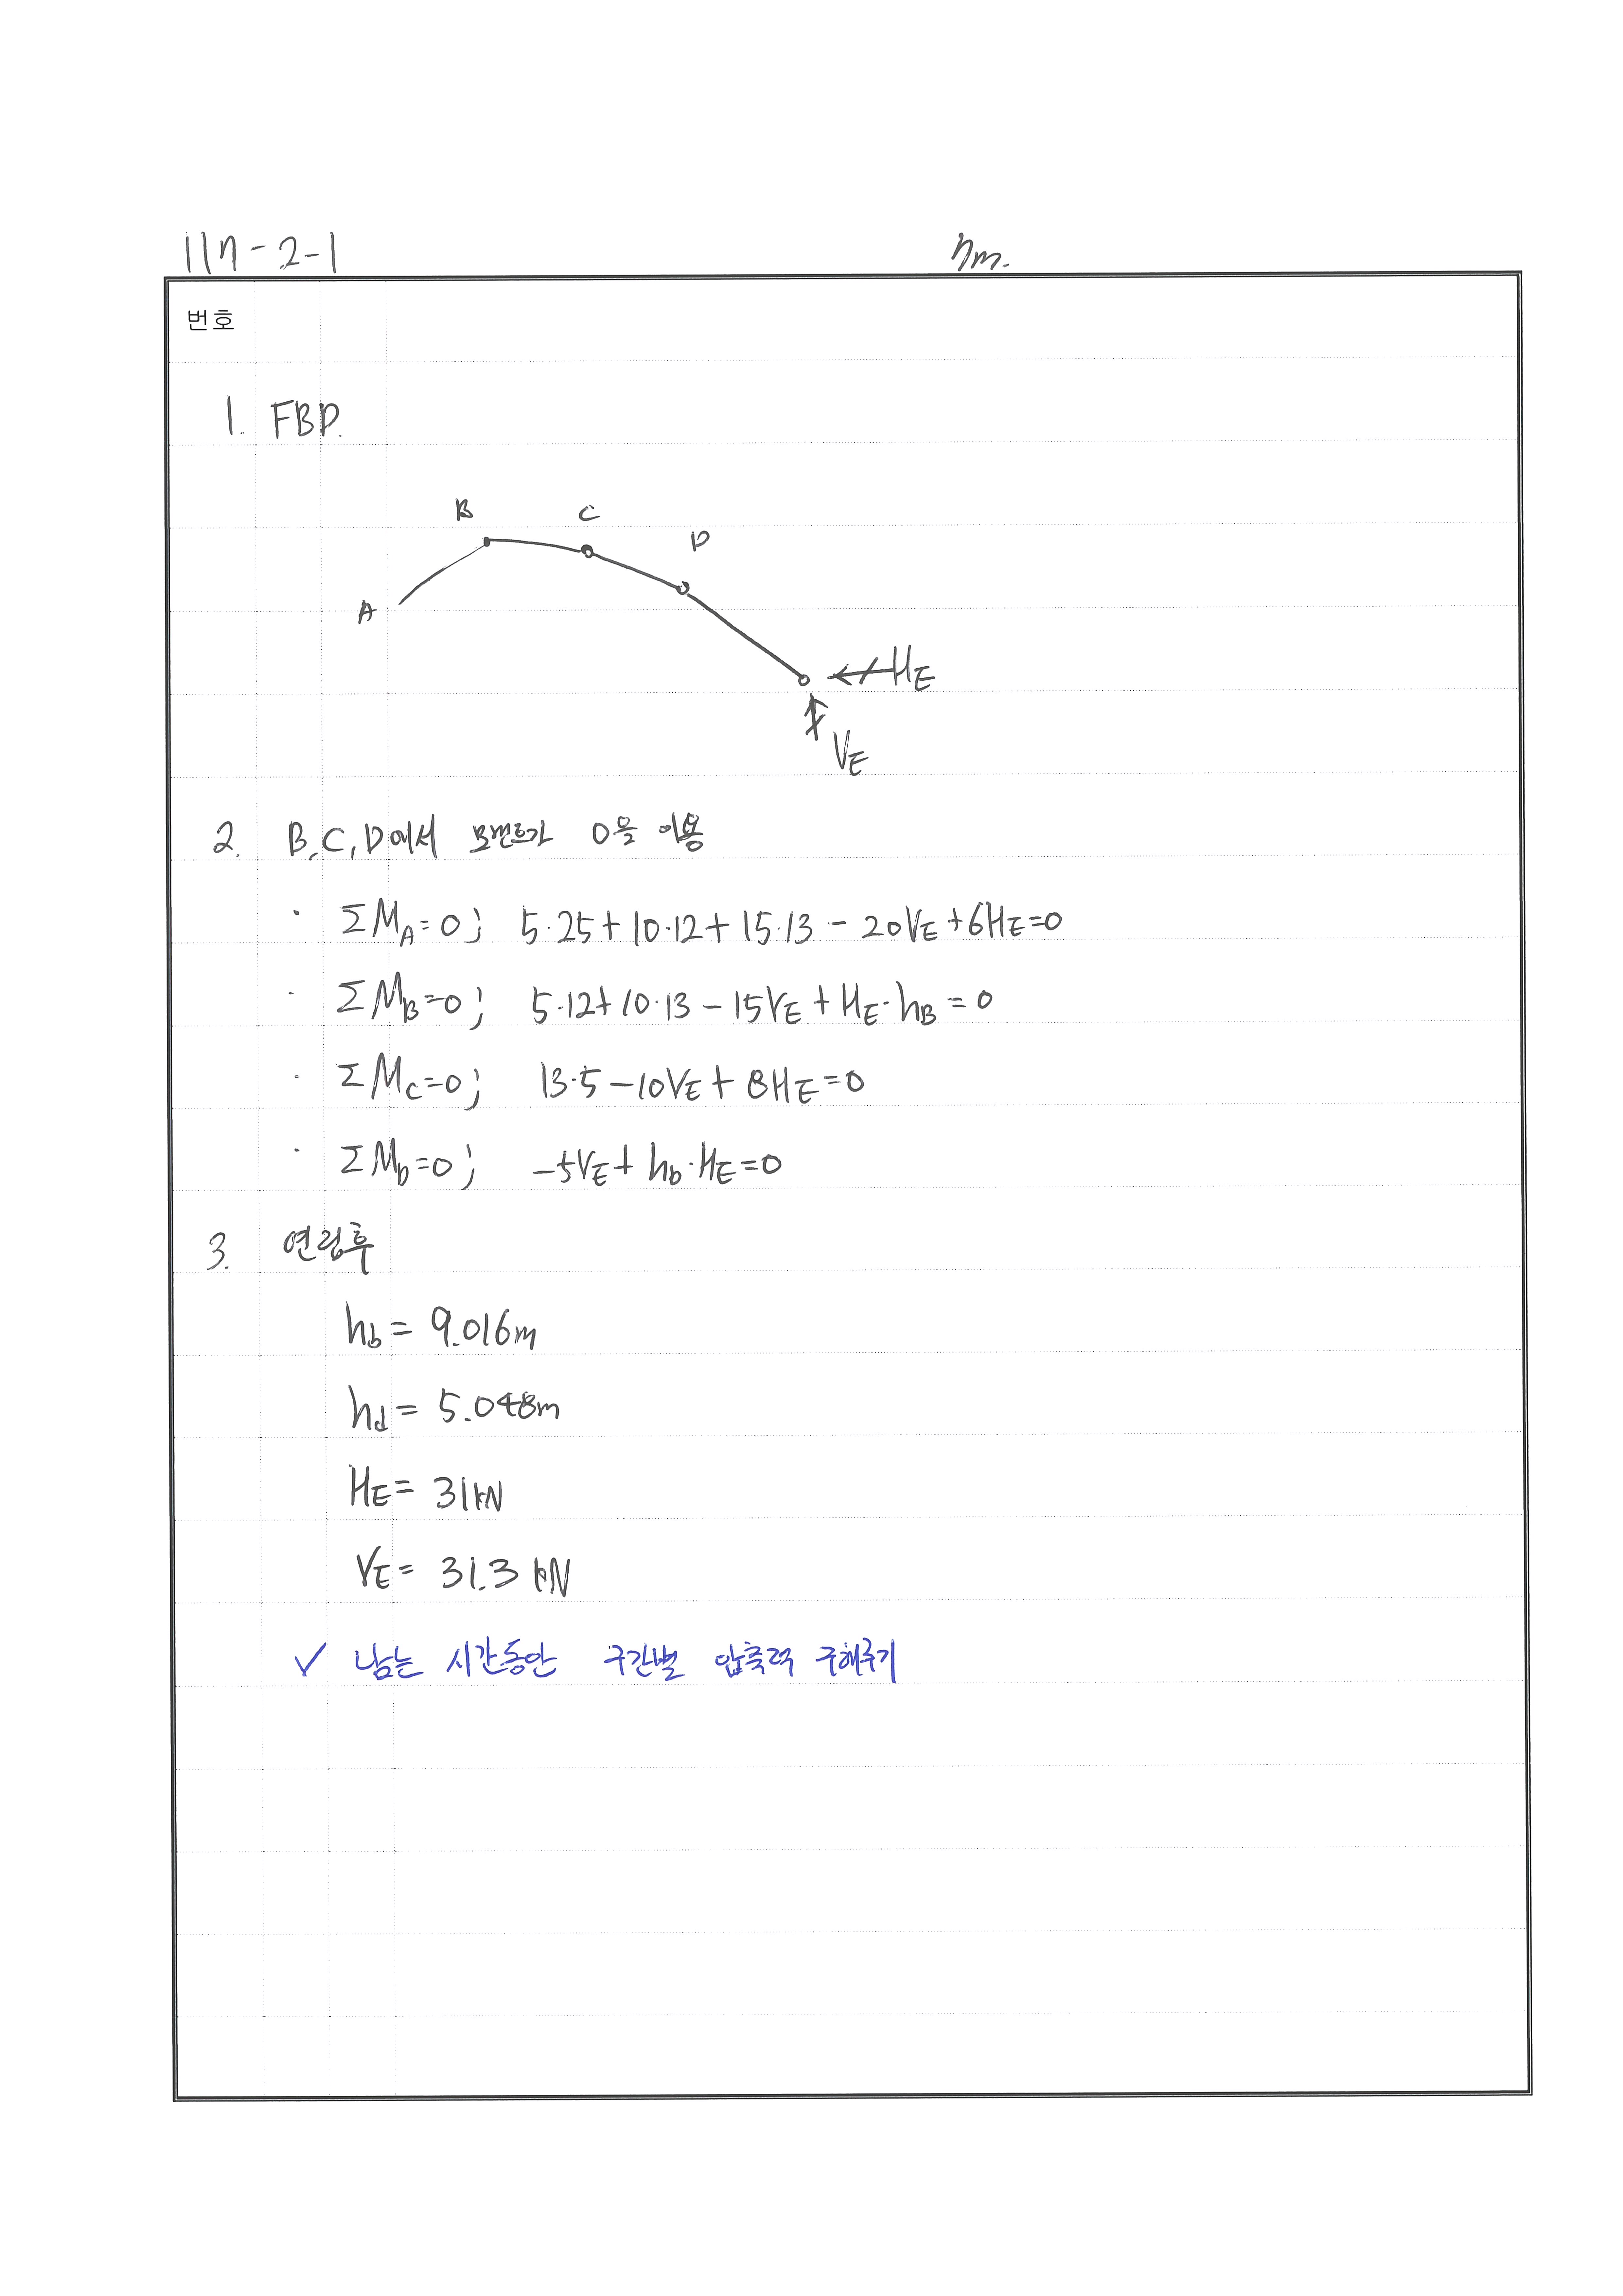 117-2-1
7m.
번호
1. FBD.
B
C
D
A
H_E
V_E
2. B, C, D에서 모멘트가 0을 이용
· ΣM_A=0; 5·25+10·12+15·13-20V_E+6H_E=0
· ΣM_B=0; 5·12+10·13-15V_E+H_E·h_B=0
· ΣM_C=0; 13·5-10V_E+8H_E=0
· ΣM_D=0; -5V_E+h_D·H_E=0
3. 연립후
h_b=9.016m
h_d=5.048m
H_E=31kN
V_E=31.3kN
✓ 남는 시간동안 구간별 압축력 구해주기